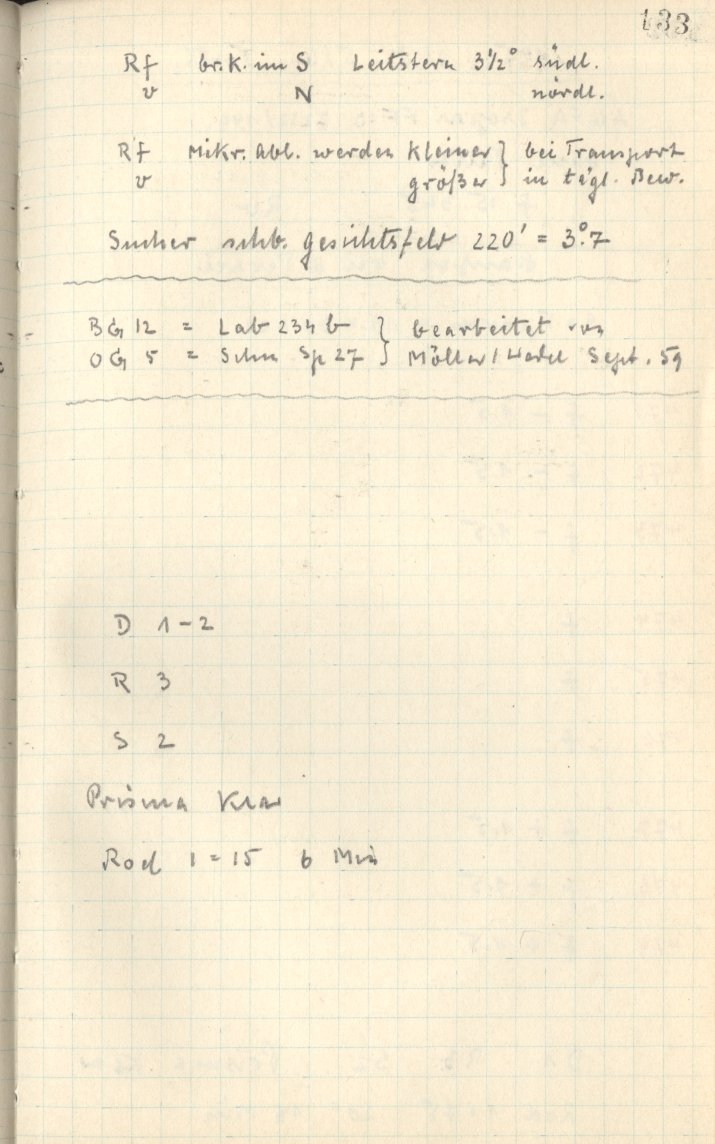 133
Rf br. K. im S Leitstern 3 1/2° südl.
v N nördl.
Rf Mikr. Abl. werden kleiner } bei Transport
v größer } in tägl. Bew.
Sucher schb. Gesichtsfeld 220' = 3°.7
BG 12 = Lab 234 b } bearbeitet von
OG 5 = Schn Sp 27 } Möller / Wedel Sept. 59
D 1-2
R 3
S 2
Prisma Klar
Rod 1 = 15 6 Min